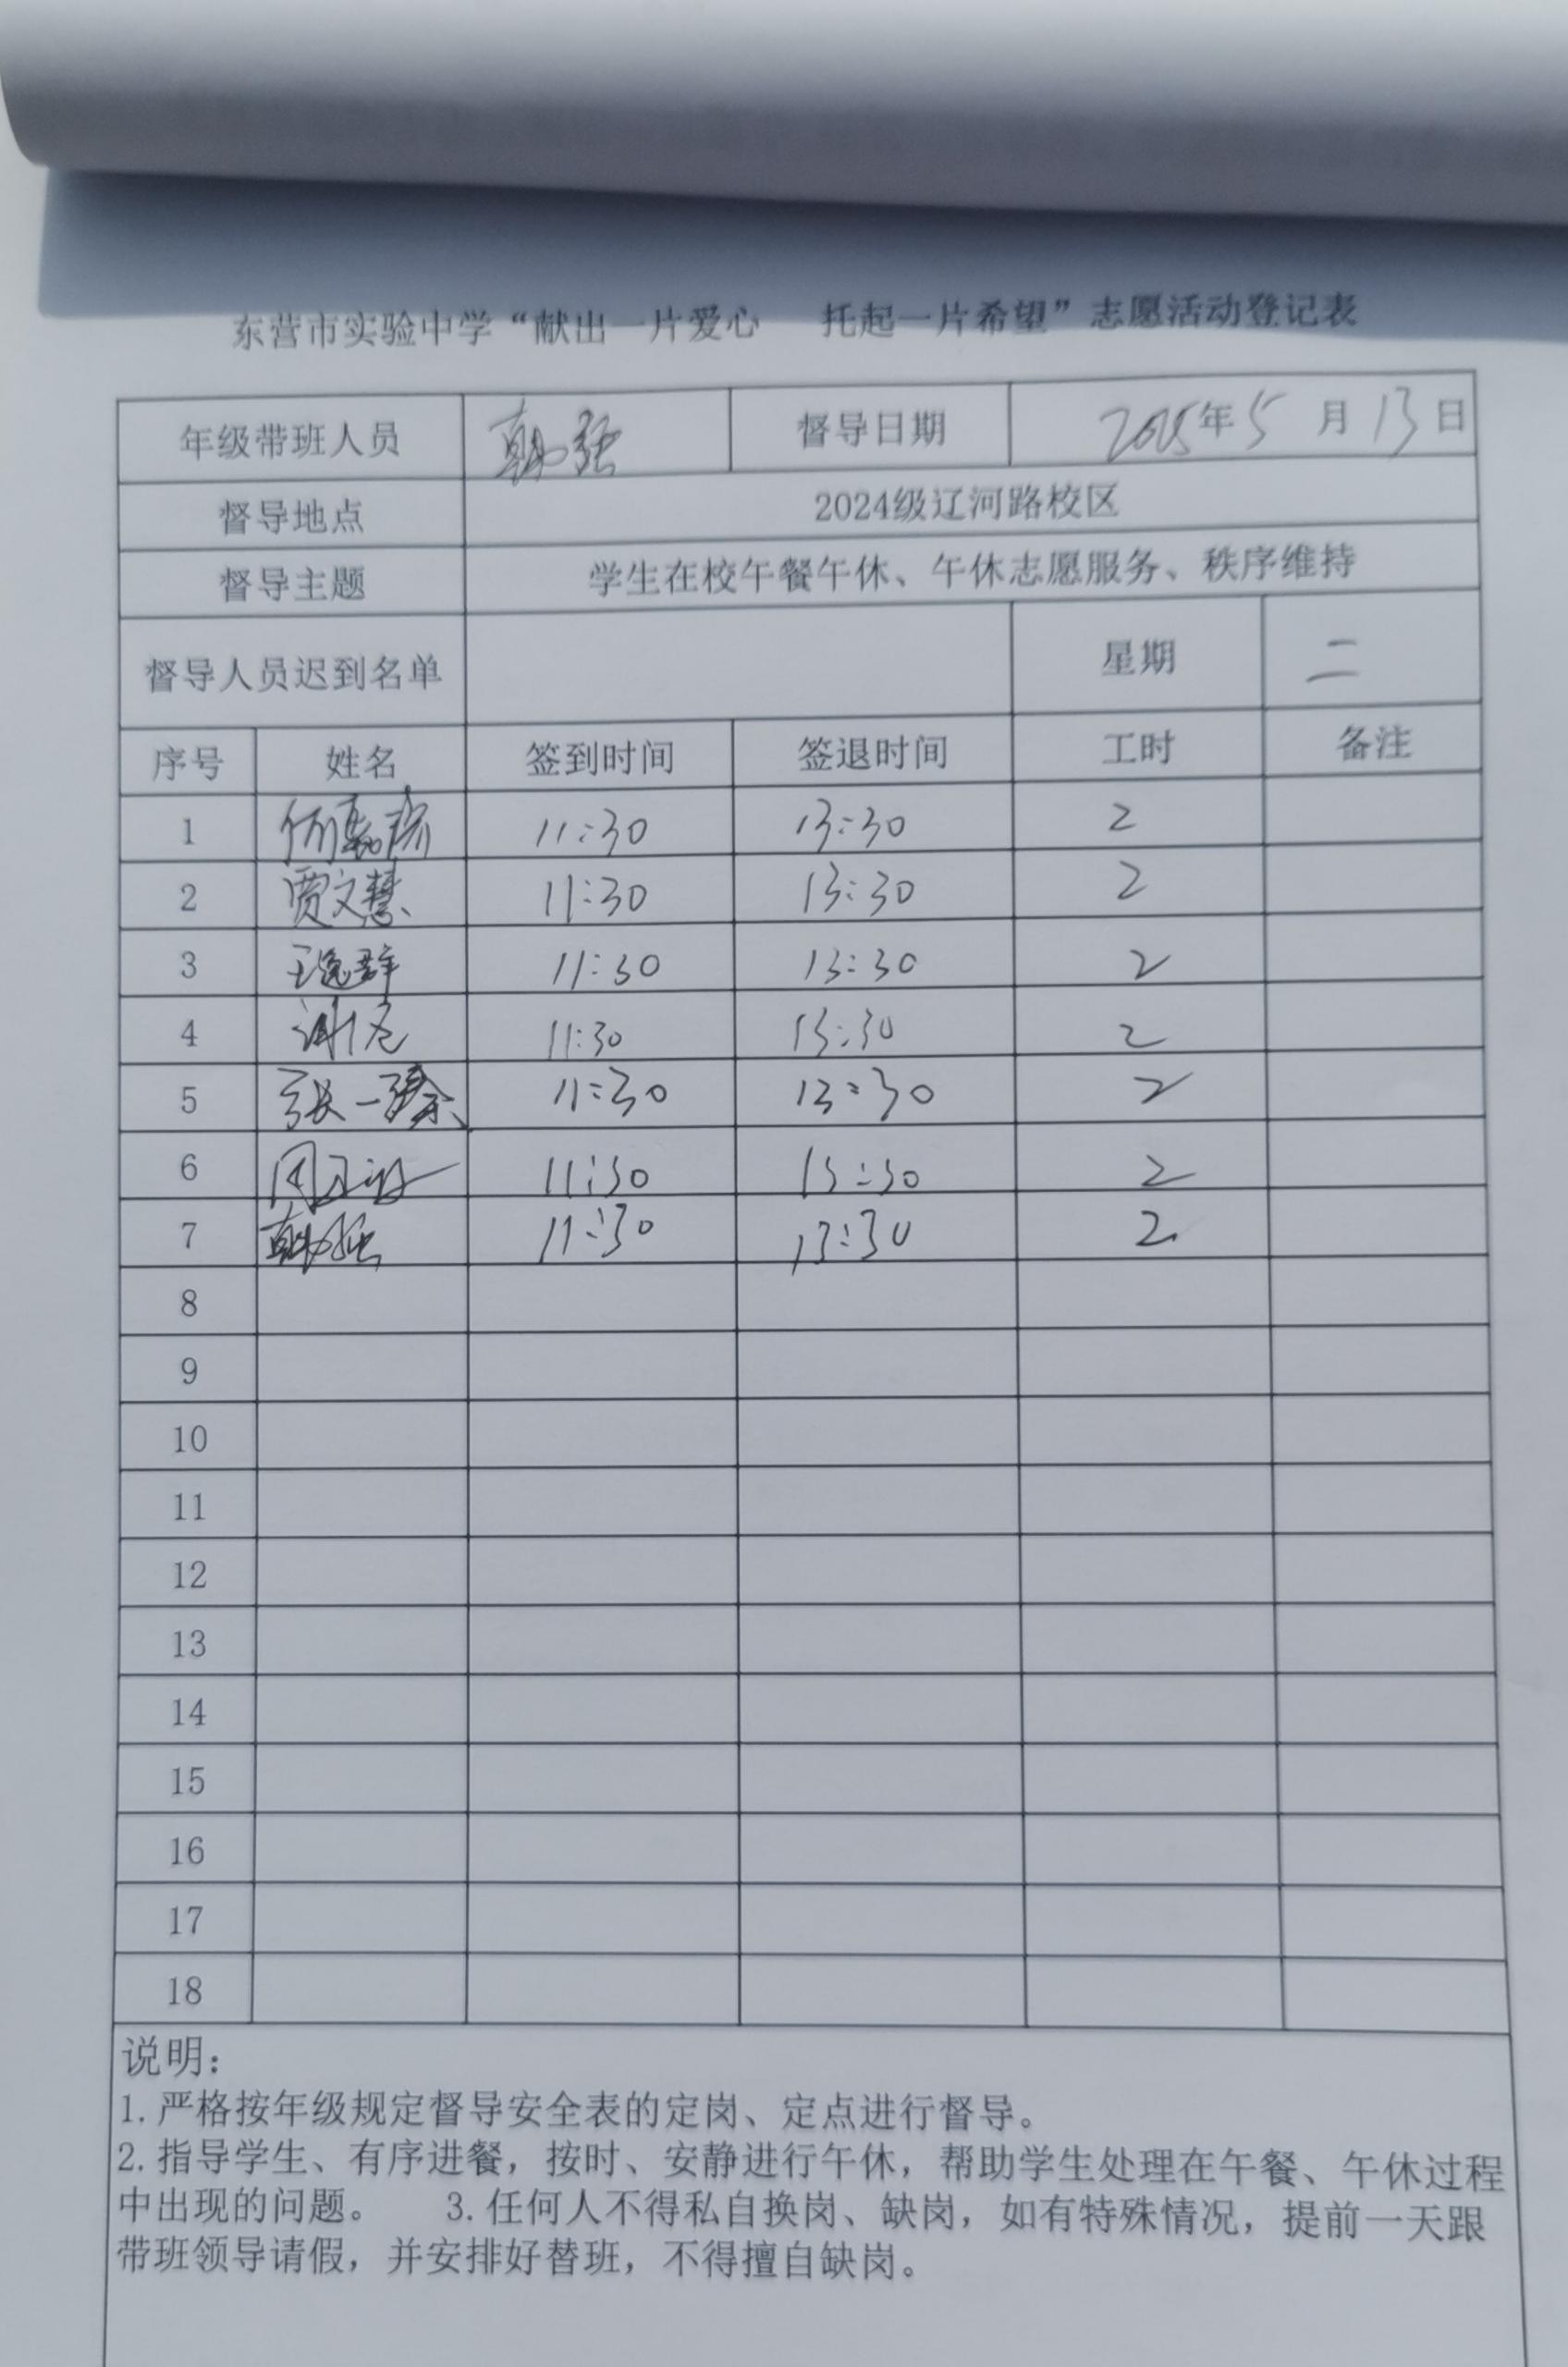 东营市实验中学“献出一片爱心 托起一片希望”志愿活动登记表
年级带班人员 督导日期 2025年5月13日
督导地点 2024级辽河路校区
督导主题 学生在校午餐午休、午休志愿服务、秩序维持
督导人员迟到名单 星期 二
序号 姓名 签到时间 签退时间 工时 备注
1 11:30 13:30 2
2 贾文慧 11:30 13:30 2
3 王逸群 11:30 13:30 2
4 11:30 13:30 2
5 张一 11:30 13:30 2
6 周 11:30 13:30 2
7 11:30 13:30 2
8
9
10
11
12
13
14
15
16
17
18
说明：
1.严格按年级规定督导安全表的定岗、定点进行督导。
2.指导学生、有序进餐，按时、安静进行午休，帮助学生处理在午餐、午休过程
中出现的问题。 3.任何人不得私自换岗、缺岗，如有特殊情况，提前一天跟
带班领导请假，并安排好替班，不得擅自缺岗。